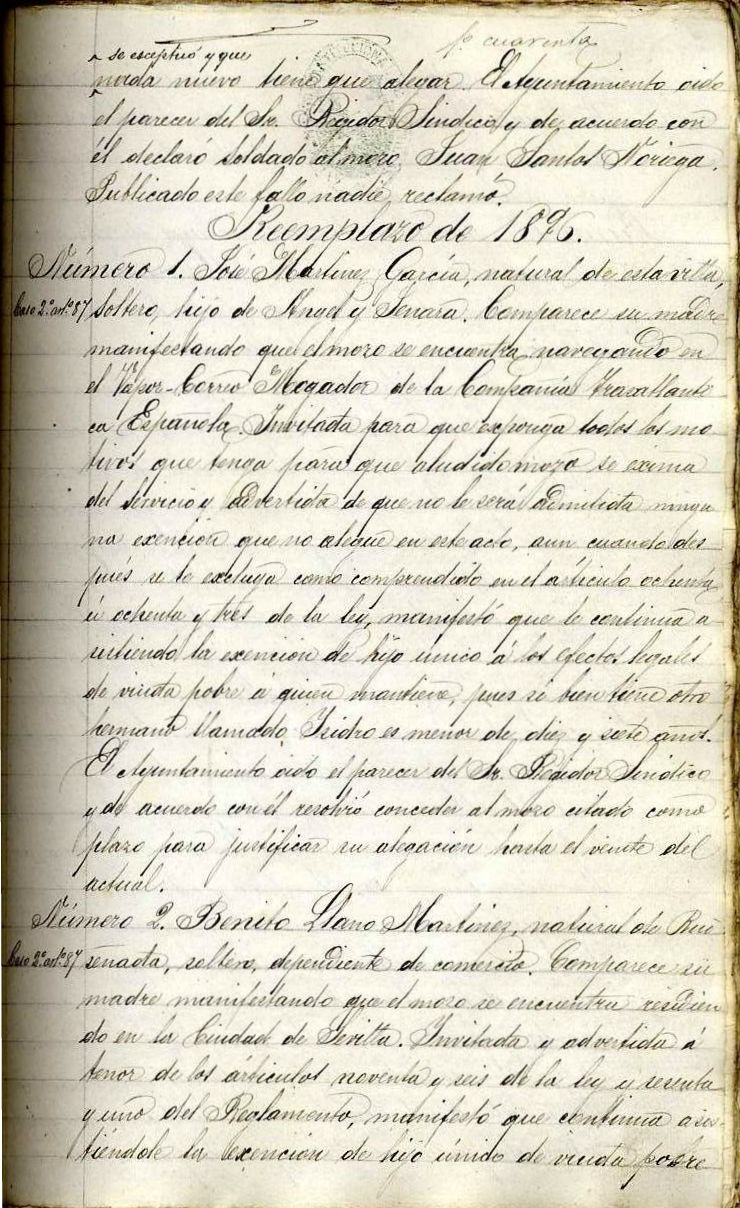 fº cuarenta
se esceptuó y que
nada nuevo tiene que alegar. El Ayuntamiento oido
el parecer del Sr. Regidor Sindico y de acuerdo con
él declaró soldado al mozo Juan Santos Noriega.
Publicado este fallo nadie reclamó.
Reemplazo de 1896.
Número 1. José Martinez Garcia, natural de esta villa,
Caso 2º artº 87 soltero, hijo de Angel y Genara. Comparece su madre
manifestando que el mozo se encuentra navegando en
el Vapor-Correo Mogador de la Compañia Trasatlanti
ca Española. Invitada para que exponga todos los mo
tivos que tenga para que aludido mozo se exima
del servicio y advertida de que no le será admitida ningu
na exención que no alegue en este acto, aun cuando des
pués se le excluya como comprendido en el artículo ochenta
ú ochenta y tres de la ley, manifestó que le continua a
sistiendo la exención de hijo unico á los efectos legales
de viuda pobre á quien mantiene, pues si bien tiene otro
hermano llamado Isidro es menor de diez y siete años.
El Ayuntamiento oido el parecer del Sr. Regidor Sindico
y de acuerdo con él resolvió conceder al mozo citado como
plazo para justificar su alegación hasta el veinte del
actual.
Número 2. Benito Llano Martinez, natural de Rui
Caso 2º artº 87 señada, soltero, dependiente de comercio. Comparece su
madre manifestando que el mozo se encuentra residien
do en la Ciudad de Sevilla. Invitada y advertida á
tenor de los árticulos noventa y seis de la ley y sesenta
y uno del Reglamento, manifestó que continua asis
tiéndole la exención de hijo único de viuda pobre